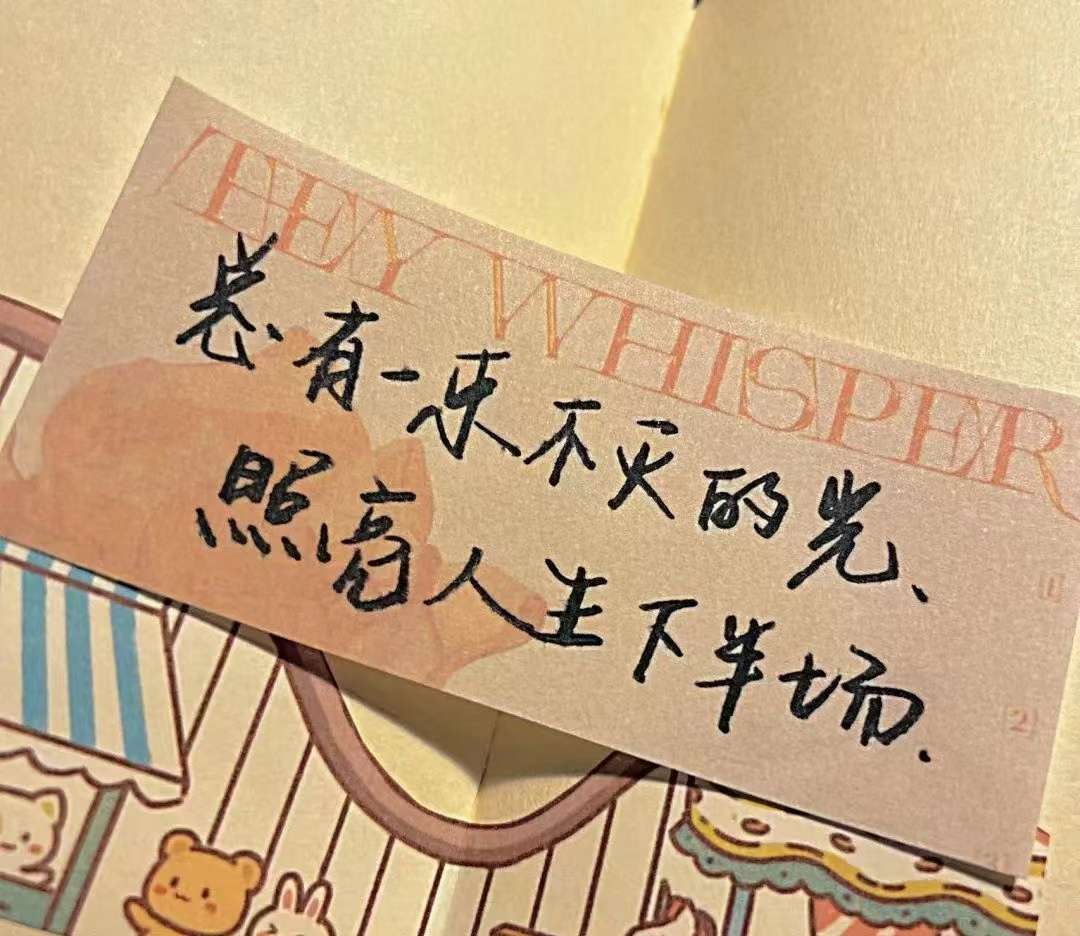 THEY WHISPER
总有一束不灭的光、
照亮人生下半场.
1
2